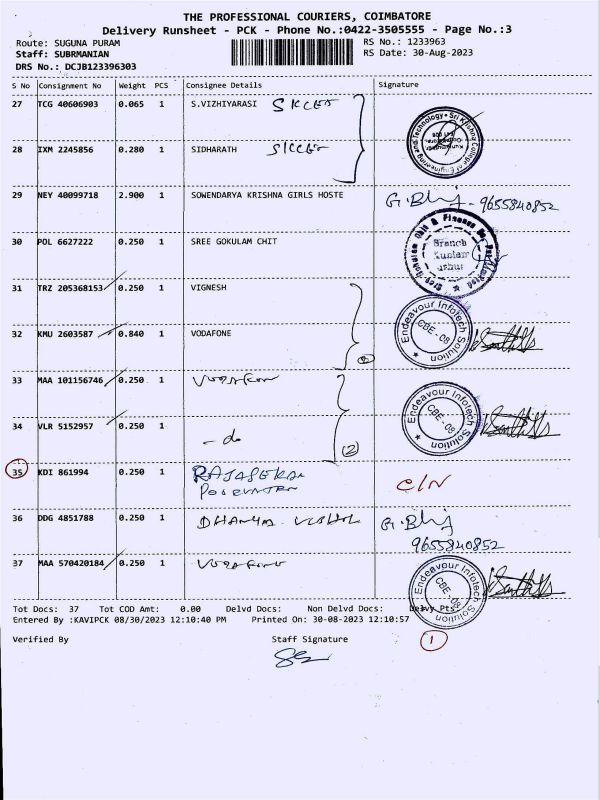 THE PROFESSIONAL COURIERS, COIMBATORE
Delivery Runsheet - PCK - Phone No.:0422-3505555 - Page No.:3
Route: SUGUNA PURAM
RS No.: 1233963
Staff: SUBRMANIAN
RS Date: 30-Aug-2023
DRS No.: DCJB123396303
S No Consignment No Weight PCS Consignee Details Signature
27 TCG 40606903 0.065 1 S.VIZHIYARASI SKCET
28 IXM 2245856 0.280 1 SIDHARATH SKCET
29 NEY 40099718 2.900 1 SOWENDARYA KRISHNA GIRLS HOSTE 9655840852
30 POL 6627222 0.250 1 SREE GOKULAM CHIT
Branch
31 TRZ 205368153 0.250 1 VIGNESH
32 KMU 2603587 0.840 1 VODAFONE
Endeavour Infotech Solution
CBE - 08
33 MAA 101156746 0.250 1 Vodafone
34 VLR 5152957 0.250 1 - do (2)
Endeavour Infotech Solution
CBE - 08
35 KDI 861994 0.250 1 RAJASEKAR
C/N
36 DDG 4851788 0.250 1 DHANYA
9655840852
37 MAA 570420184 0.250 1 Vodafone
Endeavour Infotech Solution
CBE - 08
Tot Docs: 37 Tot COD Amt: 0.00 Delvd Docs: Non Delvd Docs: Delvy Pts:
Entered By :KAVIPCK 08/30/2023 12:10:40 PM Printed On: 30-08-2023 12:10:57
1
Verified By Staff Signature